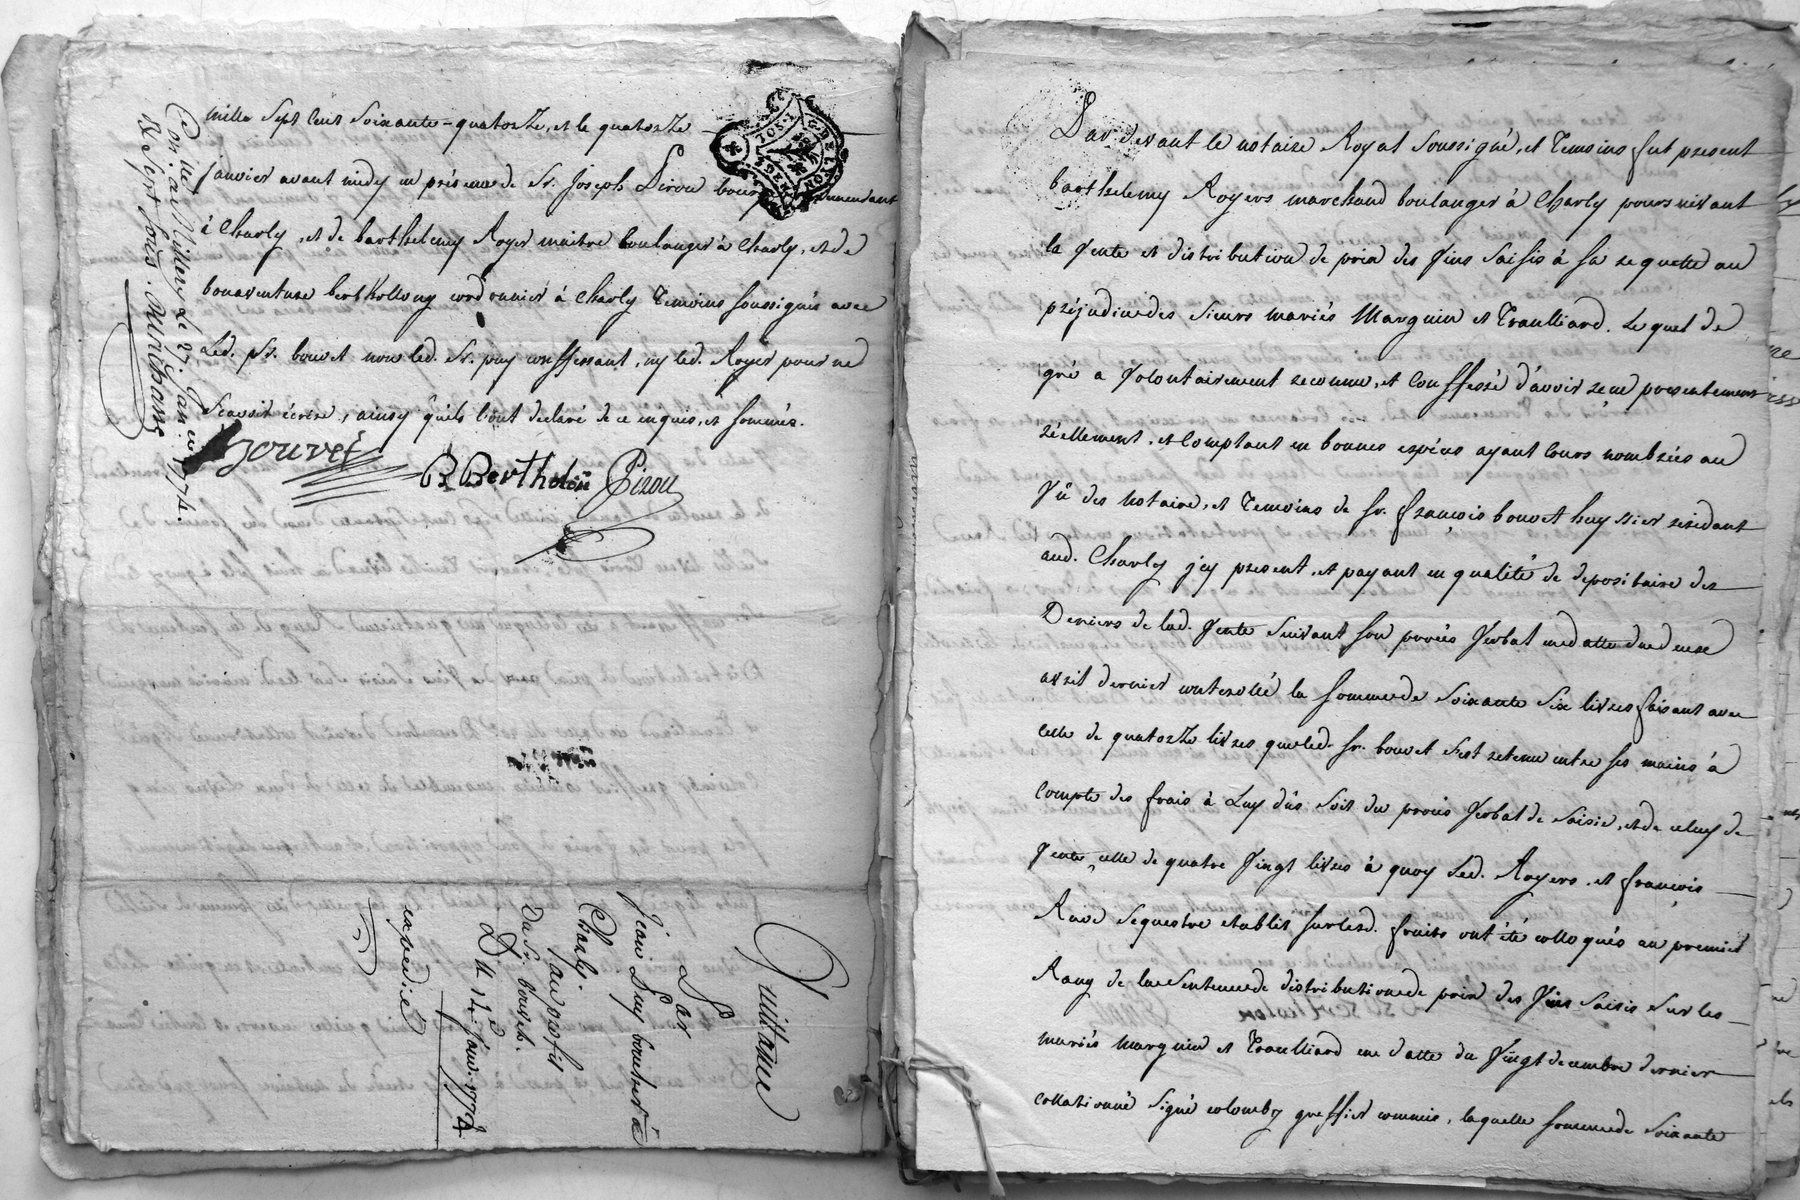 mille sept cent soixante=quatorze, et le quatorze
janvier avant midy en présence de Sr. Joseph Pirou bourg
à Charly, et de barthelemy Royer maitre boulanger à Charly, et de
bonaventure cordonnier à Charly temoins soussignés avec
Led. Sr. bouvet non led. Sr. puy confessant, ny led. Royer pour ne
scavoir écrire, ainsy qu'ils l'ont declaré de ce enquis, et sommés.
Bouvet
B Bertholon Pirou
Con.lé a Millery Le 27. Janer. 1774.
R Sept sous.
Quittance
Par
Jean Puy
Charly.
au profit
Du Sr. bouvet.
Du 14e. janv. 1774
expedié
Par devant le notaire Royal soussigné, et temoins fut present
barthelemy Royers marchand boulanger à Charly poursuivant
la vente et distribution de prix des vins saisis à sa requette au
préjudice des sieurs mariés Marguin et Traulliard. Lequel de
gré a volontairement reconnu, et confessé d'avoir reçu presentement
réellement, et comptant en bonnes espéces ayant cours nombrées au
vû des notaire, et temoins de Sr. françois bouvet huyssier residant
aud. Charly jcy present, et payant en qualité de depositaire des
Deniers de lad. vente suivant son procés verbal en datte du
avril dernier controllé la somme de soixante six livres faisant avec
celle de quatorze livres que led. Sr. bouvet s'est retenu entre ses mains à
compte des frais à Luy dûs soit du procés verbal de saisie, et de celuy de
vente, celle de quatre vingt livres à quoy Led. Royers, et françois
sequestre etablit sur lesd. fruits ont été colloqués au premier
Rang de la Sentence de distribution de prix des vins saisis sur les
mariés Marguin et Traulliard en datte du vingt decembre dernier
collationné signé colomby greffier commis, laquelle somme de soixante